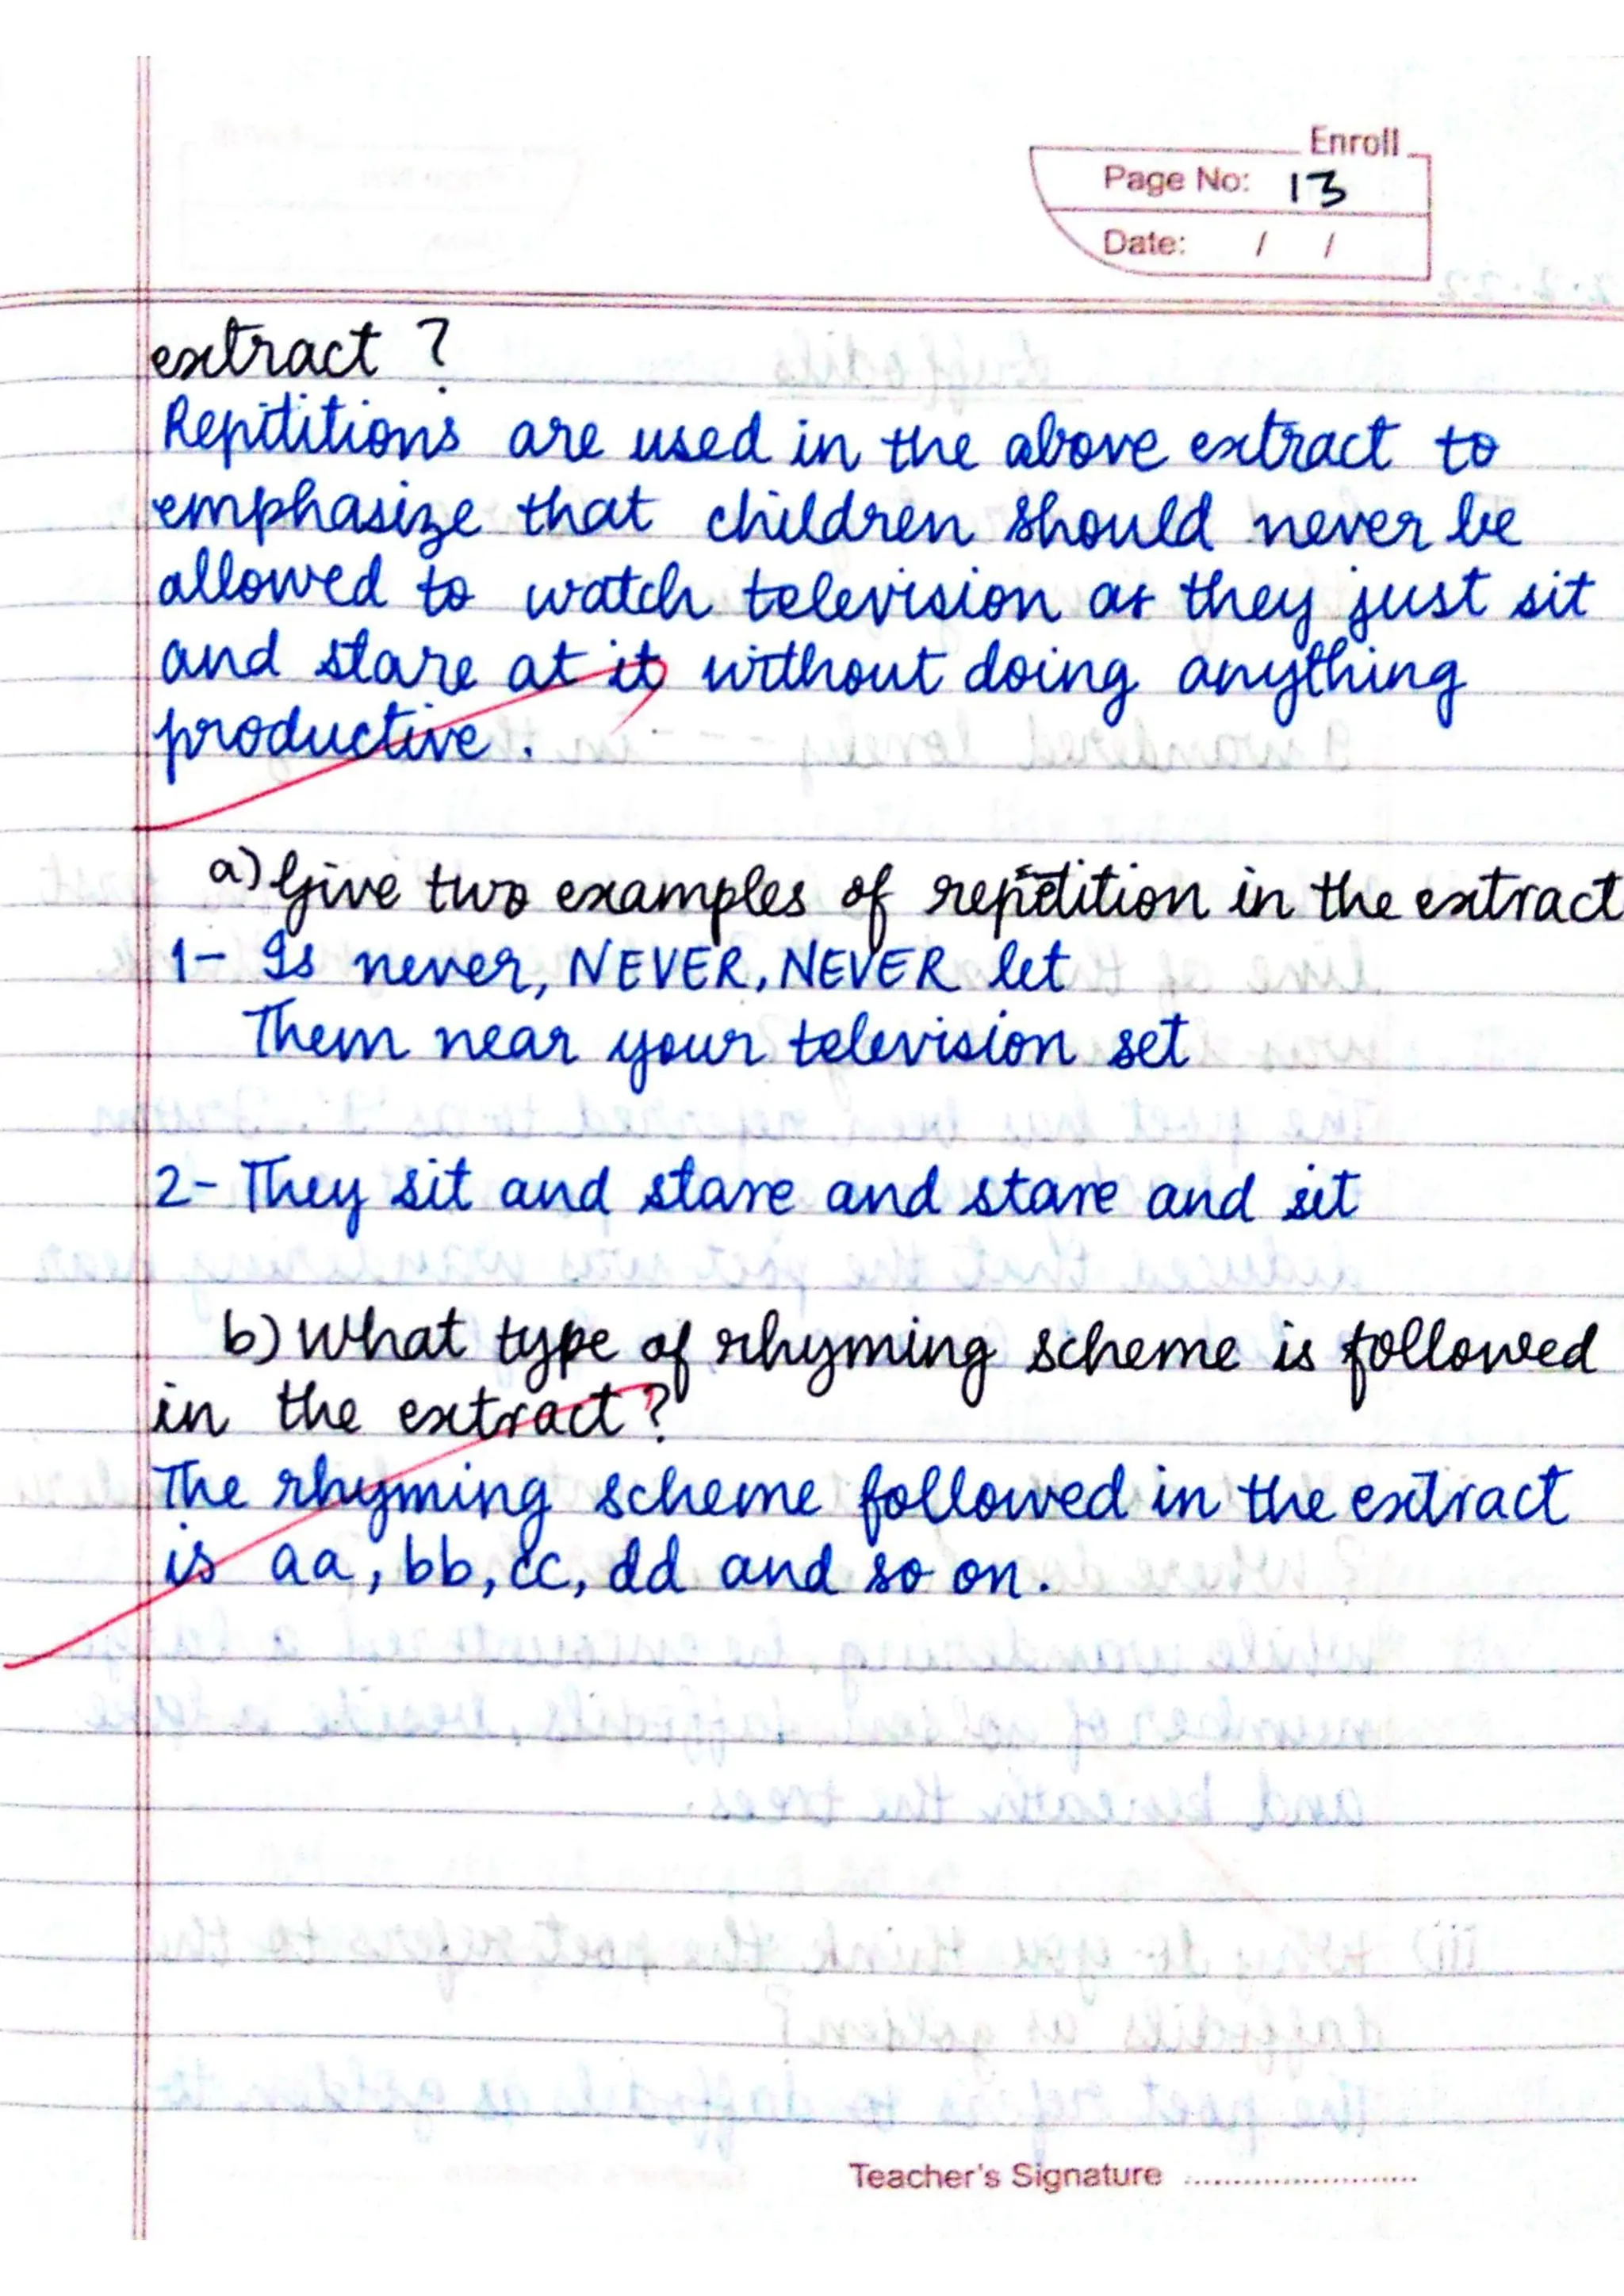 Enroll
Page No: 13
Date: / /
extract ?
Repititions are used in the above extract to
emphasize that children should never be
allowed to watch television as they just sit
and stare at it without doing anything
productive.
a) Give two examples of repetition in the extract
1- Is never, NEVER, NEVER let
Them near your television set
2- They sit and stare and stare and sit
b) What type of rhyming scheme is followed
in the extract?
The rhyming scheme followed in the extract
is aa, bb, cc, dd and so on.
Teacher's Signature ........................